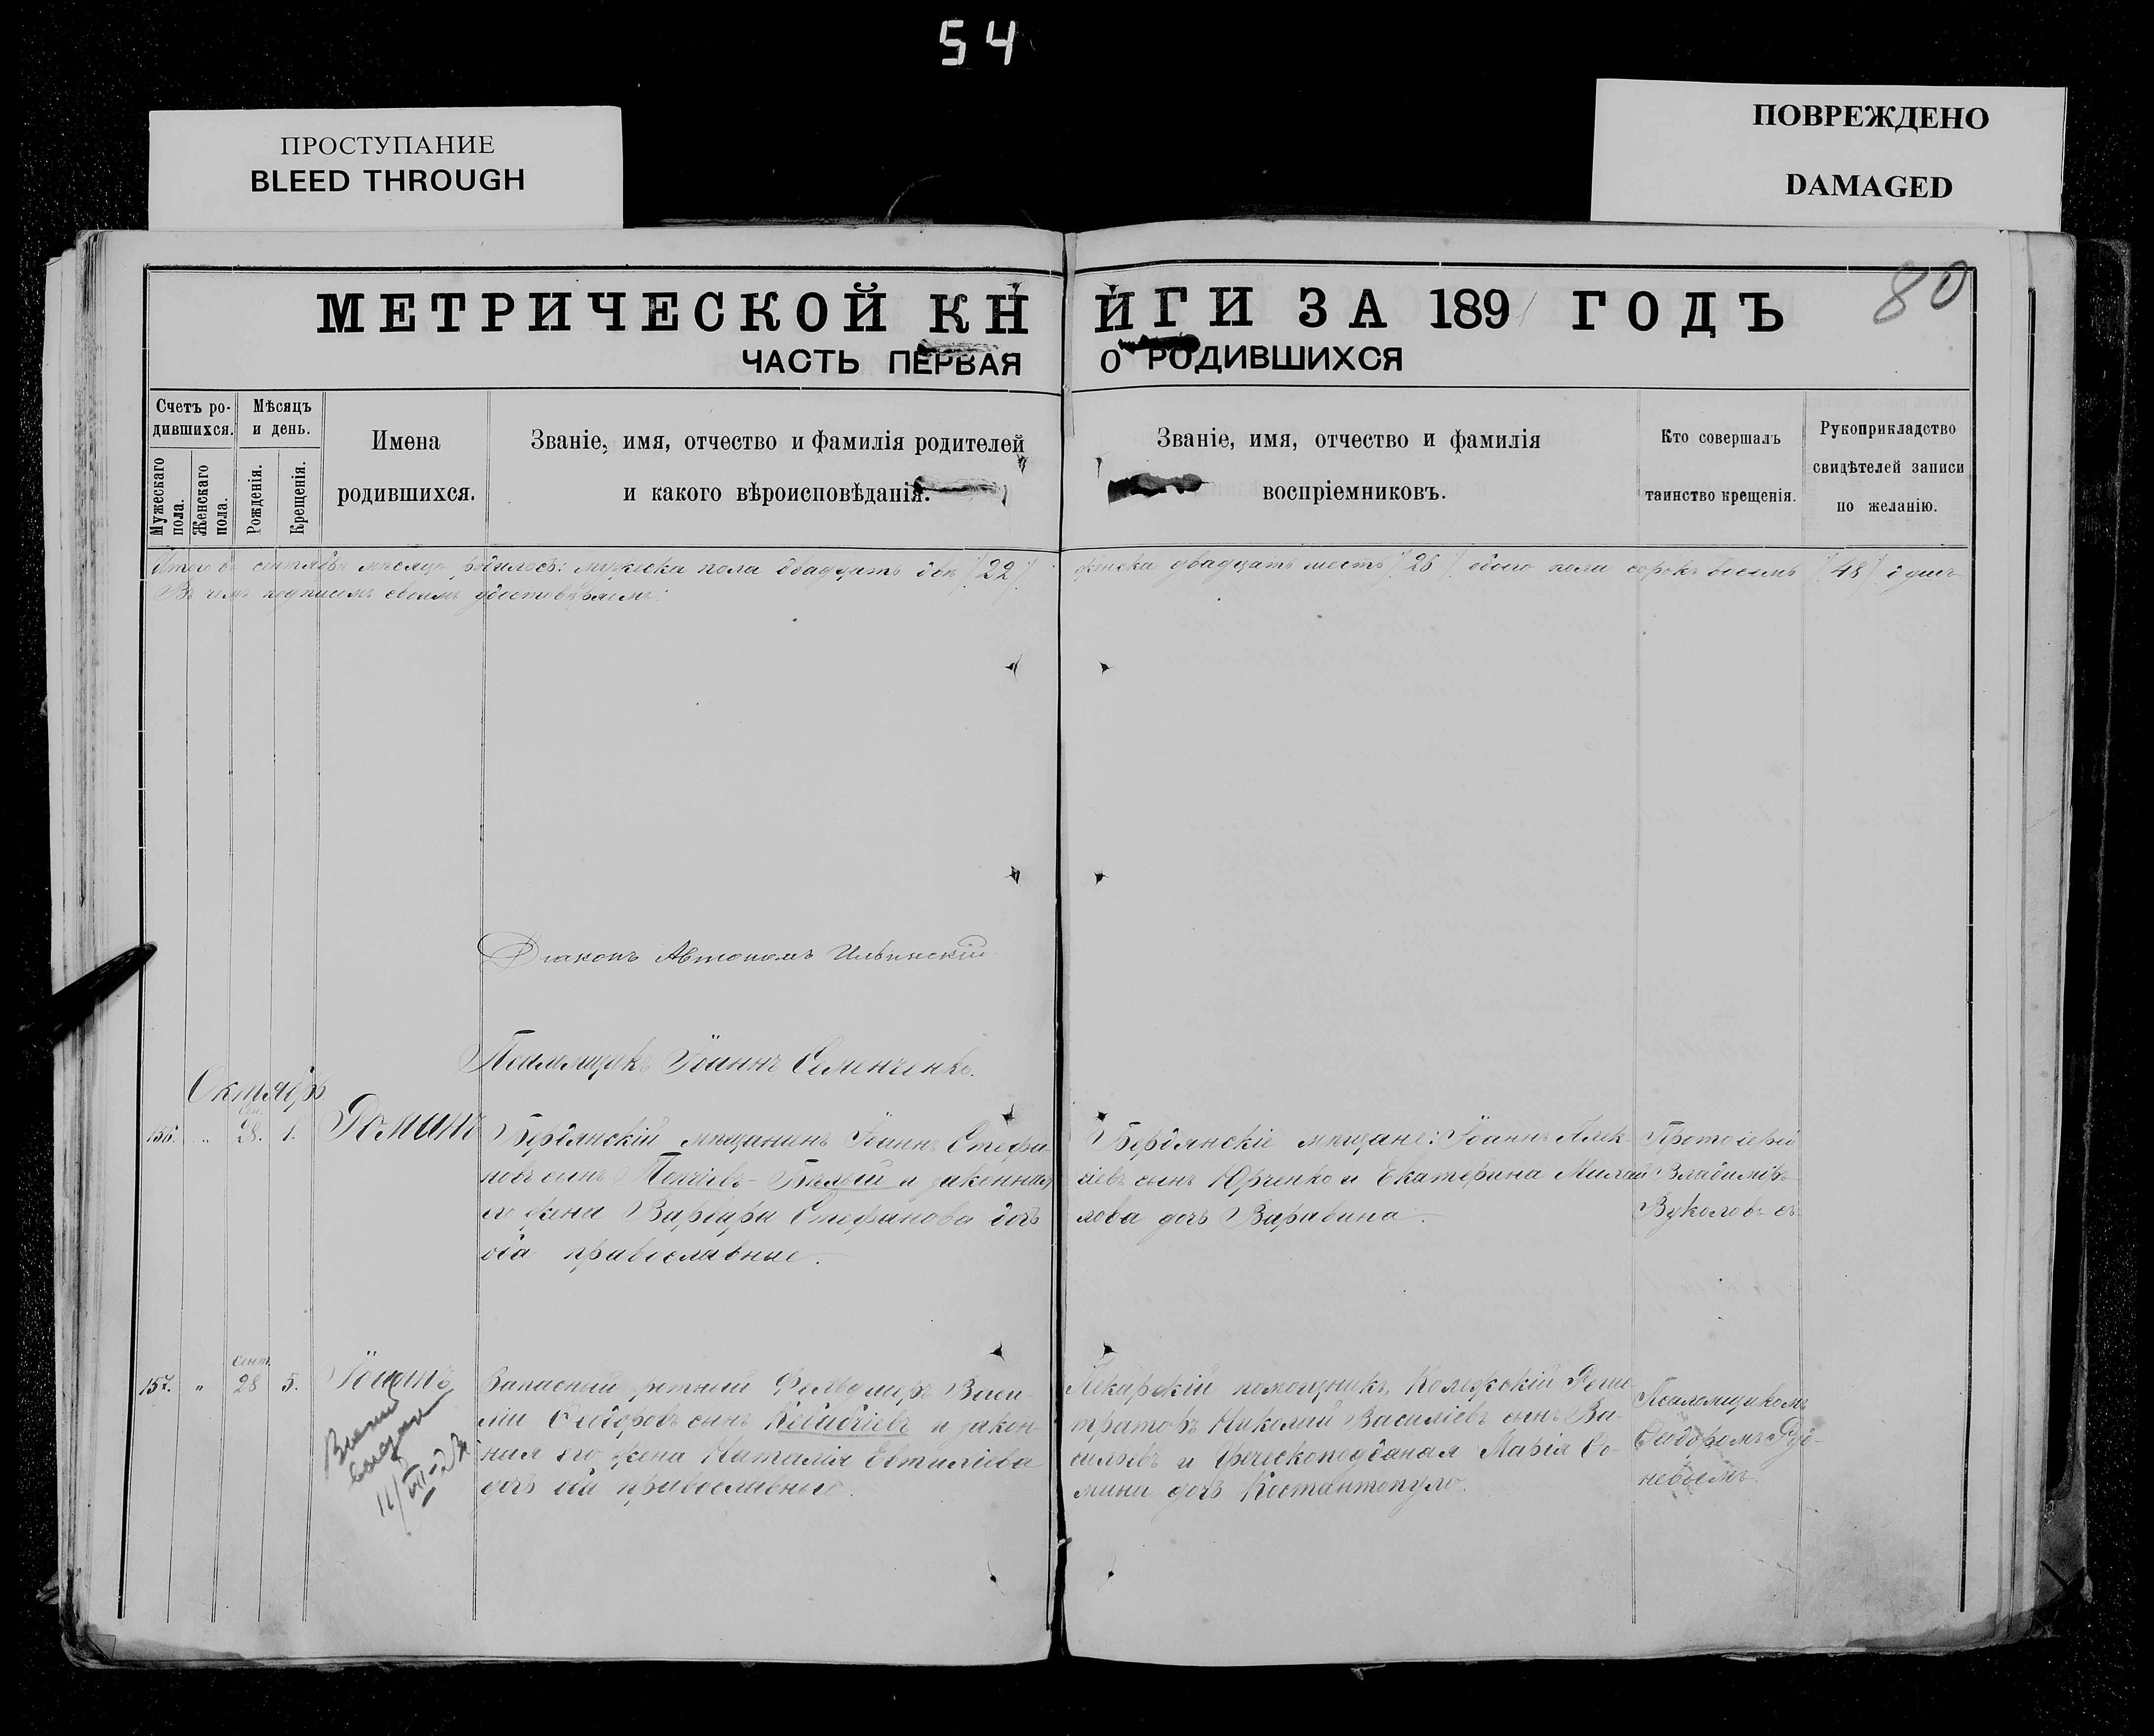 54
ПРОСТУПАНИЕ
BLEED THROUGH
ПОВРЕЖДЕНО
DAMAGED
80
МЕТРИЧЕСКОЙ КНИГИ ЗА 1891 ГОДЪ
ЧАСТЬ ПЕРВАЯ О РОДИВШИХСЯ
Счетъ ро-
дившихся.
Мужескаго
пола.
Женскаго
пола.
Мѣсяцъ
и день.
Рожденія.
Крещенія.
Имена
родившихся.
Званіе, имя, отчество и фамилія родителей
и какого вѣроисповѣданія.
Званіе, имя, отчество и фамилія
воспріемниковъ.
Кто совершалъ
таинство крещенія.
Рукоприкладство
свидѣтелей записи
по желанію.
Итого въ сентябрѣ мѣсяцѣ родилось: мужеска пола двадцать два /22/ женска двадцать шесть /26/ обоего пола сорокъ восемь /48/ душъ
Въ чемъ подписомъ своимъ удостовѣряемъ:
Діаконъ Автономъ Ильинскій
Псаломщикъ Іоаннъ Семенченко.
Октябрь
Сен.
156. „ 28. 1.
Романъ
Бердянскій мѣщанинъ Іоаннъ Стефа-
новъ сынъ Бѣлый и законная
его жена Варвара Стефанова дочь
оба православные.
Бердянскіе мѣщане: Іоаннъ Алек-
сіевъ сынъ Юрченко и Екатерина Михай-
лова дочь Варавина.
Протоіерей
Владиміръ
Вуколовъ
Сент.
157. „ 28 5.
Іоаннъ
Запасный ротный Фельдшеръ Васи-
лій Сидоровъ сынъ и закон-
ная его жена Наталія Евтихіева
дочь оба православные.
Лекарскій помощникъ, Колежскій Реги-
страторъ Николай Василіевъ сынъ Ва-
сильевъ и Греческоподданая Марія Со-
дочь Костантопуло.
Псаломщикомъ
Руд-
невымъ
выдан
11/VII-